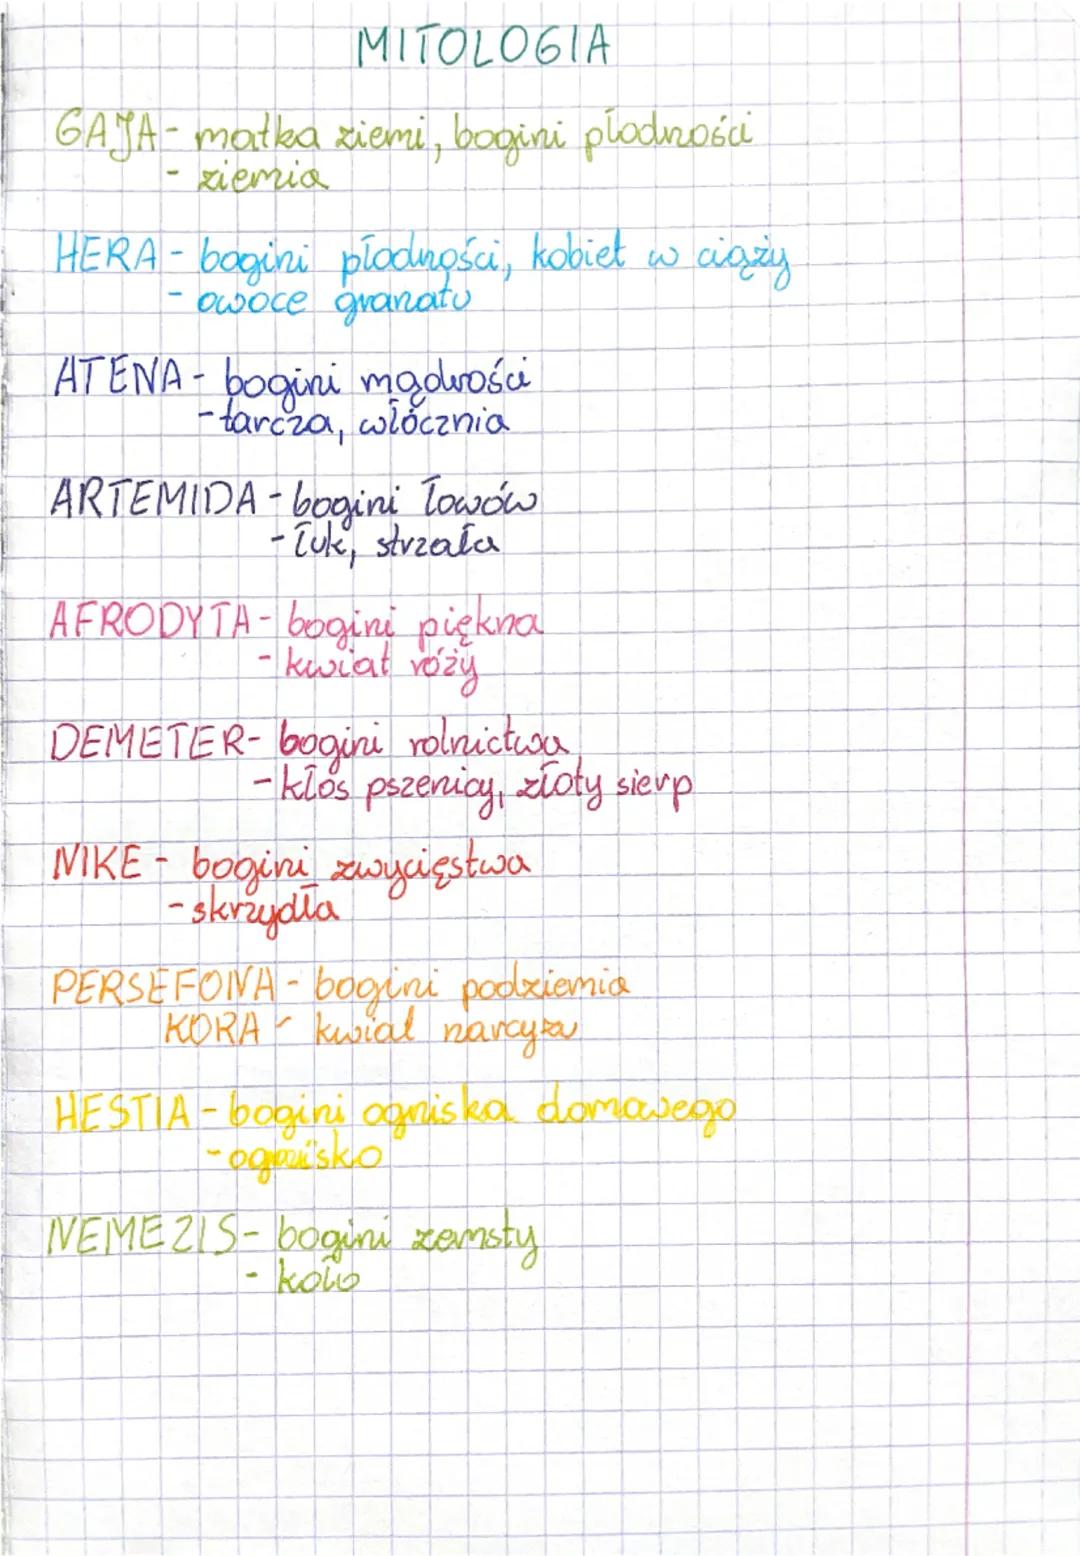 MITOLOGIA
GAJA - matka ziemi, bogini płodności
- ziemia
HERA - bogini płodności, kobiet w ciąży
- owoce granatu
ATENA - bogini mądrości
- tarcza, włócznia
ARTEMIDA - bogini łowów
- łuk, strzała
AFRODYTA - bogini piękna
- kwiat róży
DEMETER - bogini rolnictwa
- kłos pszenicy, złoty sierp
NIKE - bogini zwycięstwa
- skrzydła
PERSEFONA - bogini podziemia
KORA - kwiat narcyza
HESTIA - bogini ogniska domowego
- ognisko
NEMEZIS - bogini zemsty
- koło